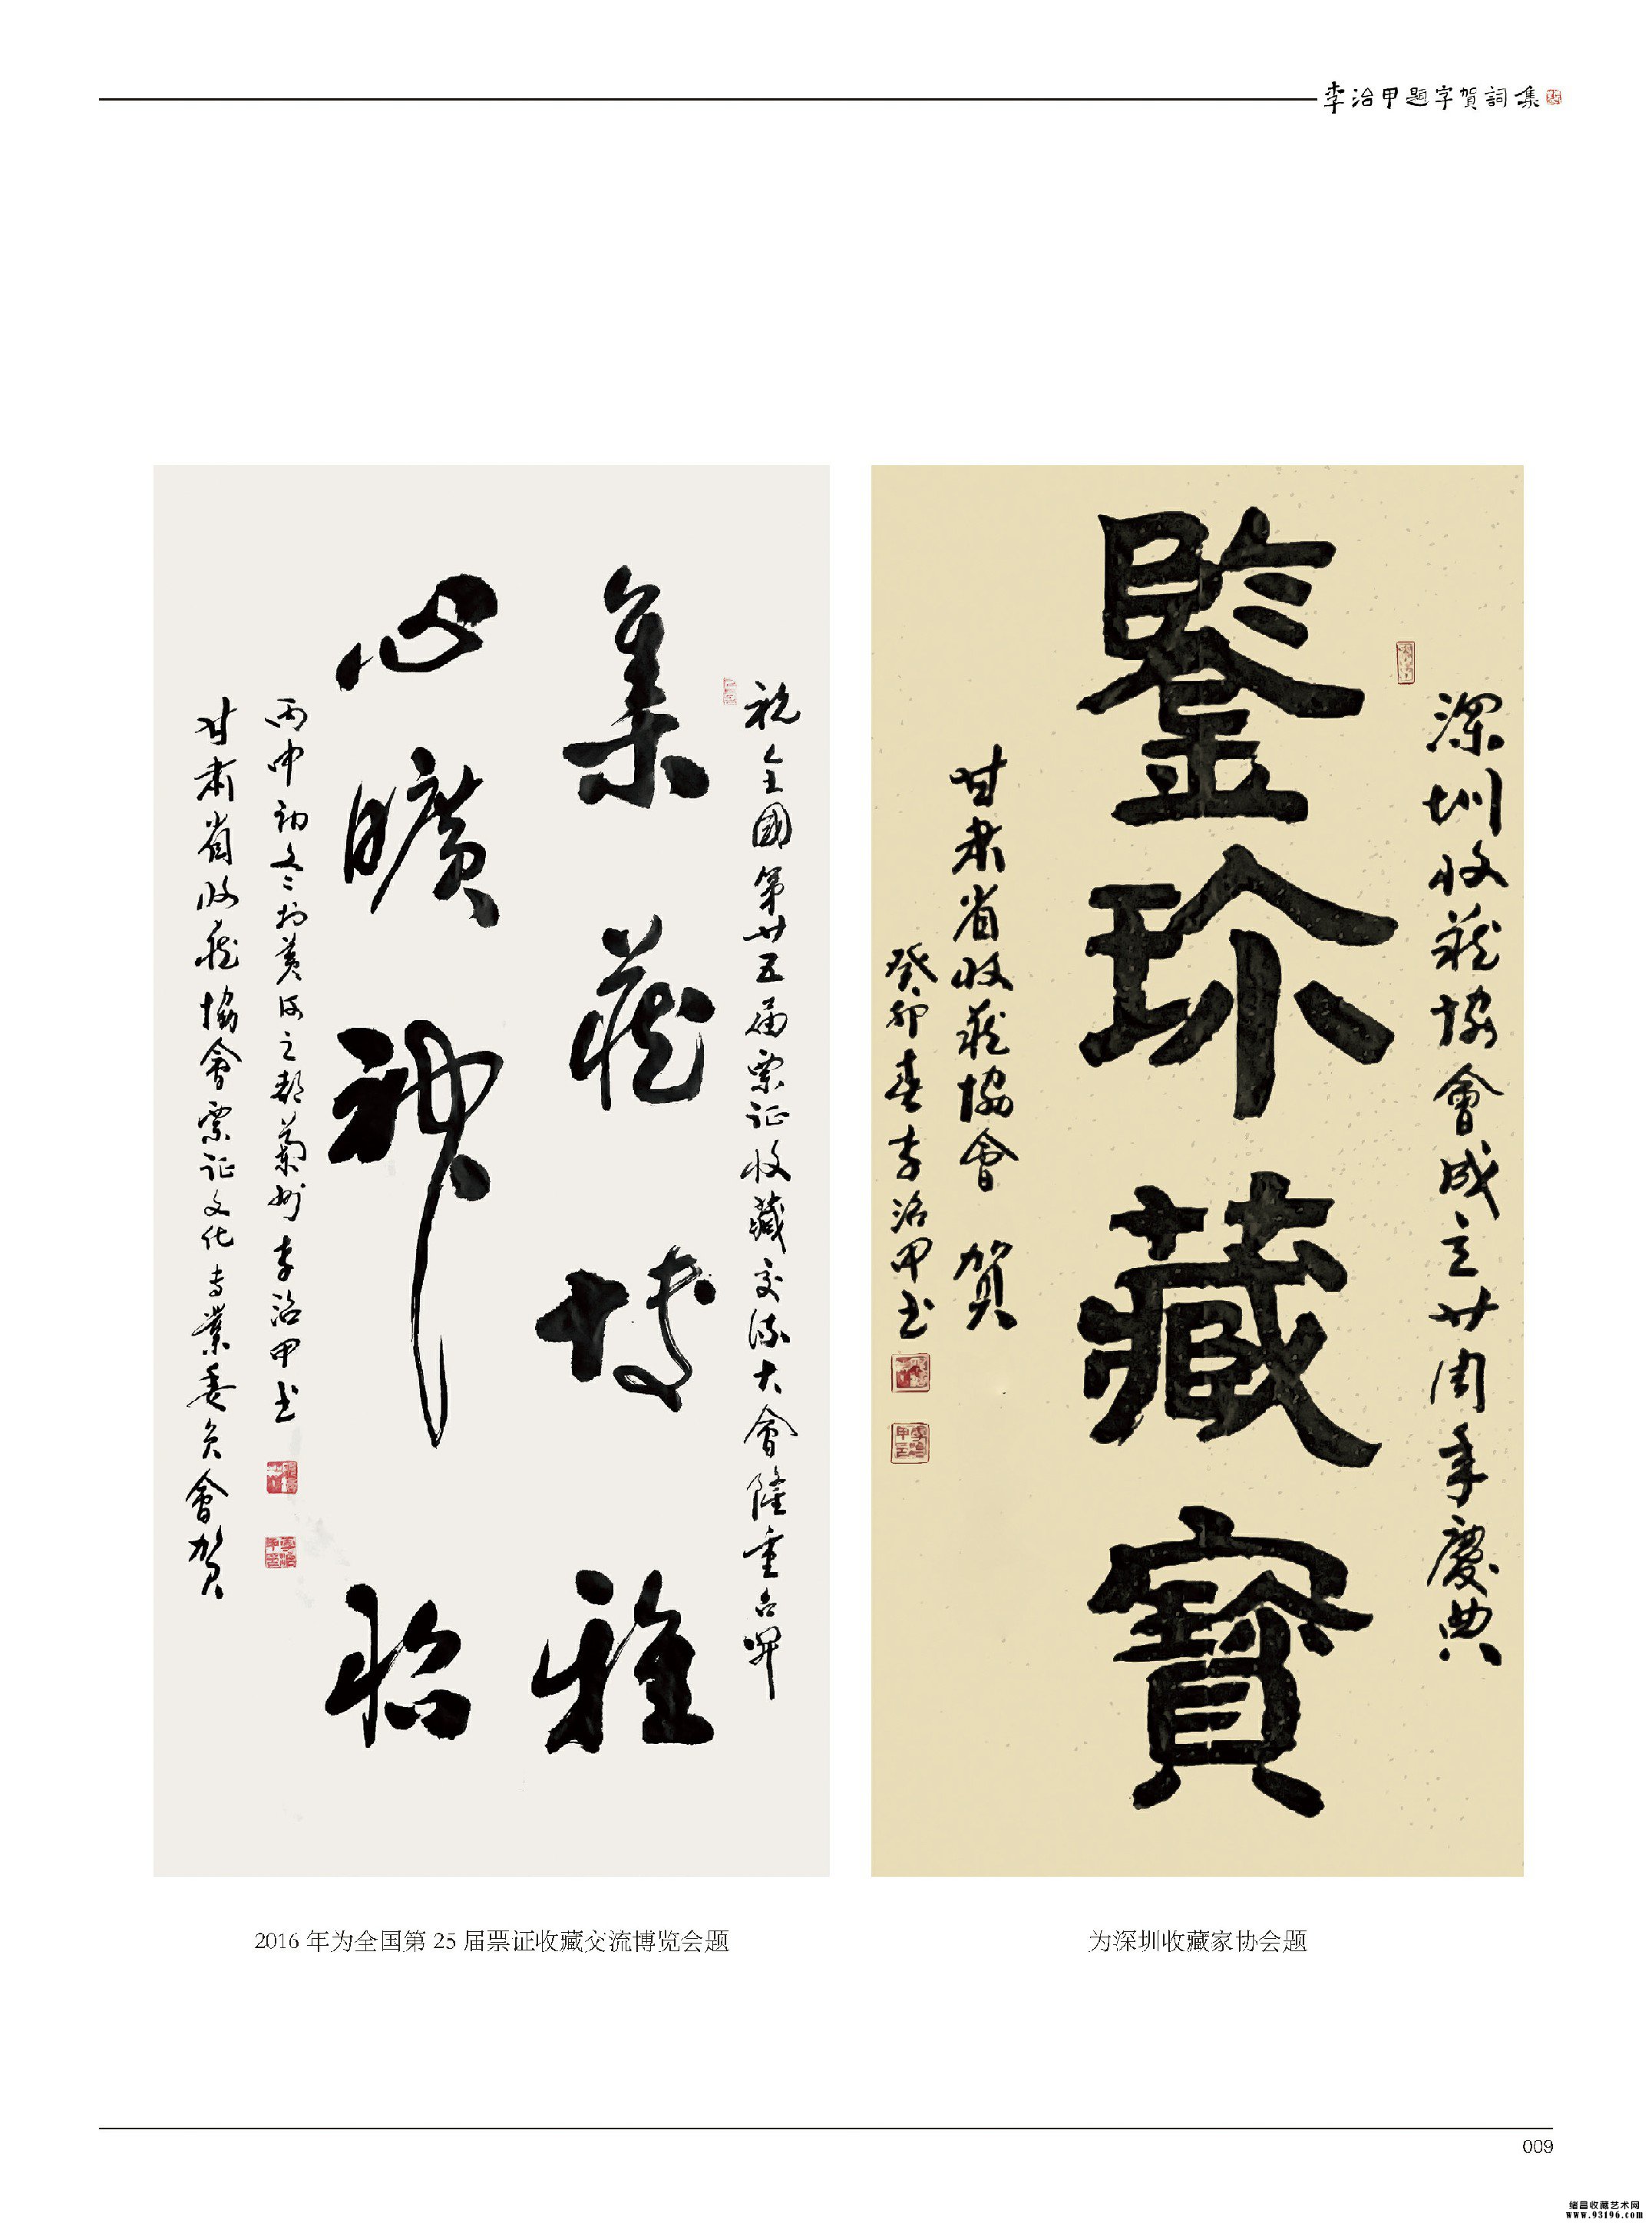 李治甲題字賀詞集
深圳收藏協會成立廿周年慶典
鑒珍藏寶
甘肅省收藏協會 賀
癸卯春李治甲书
祝全國第廿五届票证收藏交流大會隆重召開
集藏博雅
心曠神怡
丙申初冬於黄河之都蘭州李治甲书
甘肅省收藏協會票证文化专業委员會贺
2016 年为全国第 25 届票证收藏交流博览会题
为深圳收藏家协会题
009
绪昌收藏艺术网
www.93196.com